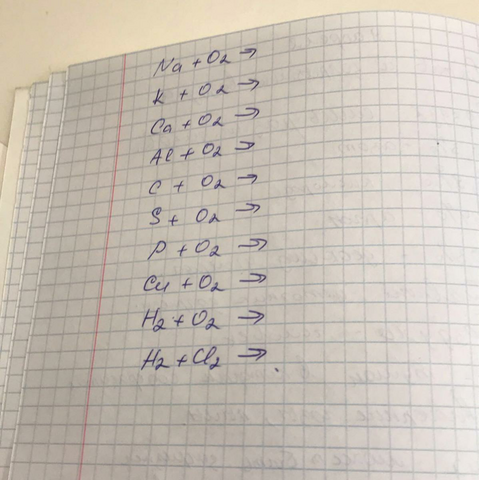 Na + O₂ →
K + O₂ →
Ca + O₂ →
Al + O₂ →
C + O₂ →
S + O₂ →
P + O₂ →
Cu + O₂ →
H₂ + O₂ →
H₂ + Cl₂ →